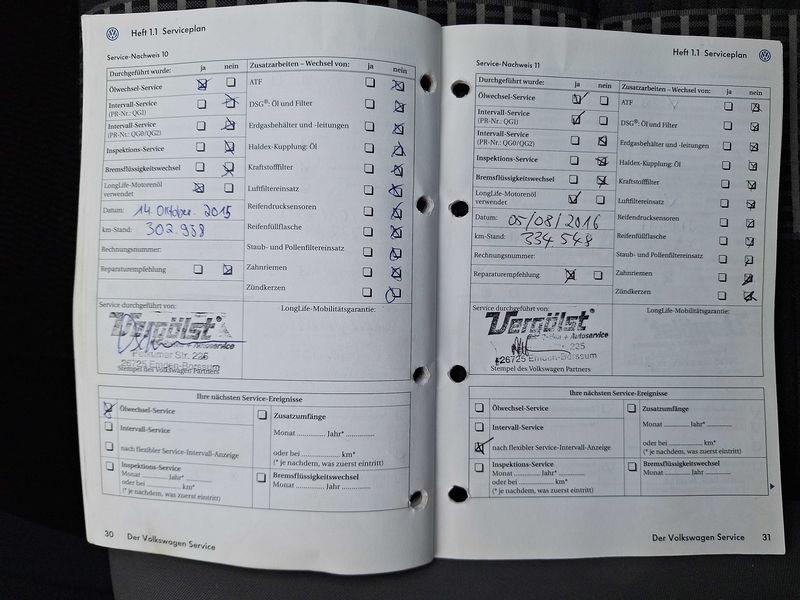 Heft 1.1 Serviceplan
Service-Nachweis 10
Durchgeführt wurde: ja nein
Ölwechsel-Service
Intervall-Service
(PR-Nr.: QG1)
Intervall-Service
(PR-Nr.: QG0/QG2)
Inspektions-Service
Bremsflüssigkeitswechsel
LongLife-Motorenöl
verwendet
Datum: 14. Oktober. 2015
km-Stand: 302 958
Rechnungsnummer:
Reparaturempfehlung
Zusatzarbeiten – Wechsel von: ja nein
ATF
DSG®: Öl und Filter
Erdgasbehälter und -leitungen
Haldex-Kupplung: Öl
Kraftstofffilter
Luftfiltereinsatz
Reifendrucksensoren
Reifenfüllflasche
Staub- und Pollenfiltereinsatz
Zahnriemen
Zündkerzen
Service durchgeführt von:
Vergölst
+ Autoservice
Petkumer Str. 225
26725 Emden-Borssum
Stempel des Volkswagen Partners
LongLife-Mobilitätsgarantie:
Ihre nächsten Service-Ereignisse
Ölwechsel-Service
Intervall-Service
nach flexibler Service-Intervall-Anzeige
Inspektions-Service
Monat ............ Jahr*............
oder bei ............ km*
(* je nachdem, was zuerst eintritt)
Zusatzumfänge
Monat ............ Jahr* ............
oder bei ............ km*
(* je nachdem, was zuerst eintritt)
Bremsflüssigkeitswechsel
Monat ............ Jahr ............
30 Der Volkswagen Service
Heft 1.1 Serviceplan
Service-Nachweis 11
Durchgeführt wurde: ja nein
Ölwechsel-Service
Intervall-Service
(PR-Nr.: QG1)
Intervall-Service
(PR-Nr.: QG0/QG2)
Inspektions-Service
Bremsflüssigkeitswechsel
LongLife-Motorenöl
verwendet
Datum: 05/08/2016
km-Stand: 334 548
Rechnungsnummer:
Reparaturempfehlung
Zusatzarbeiten – Wechsel von: ja nein
ATF
DSG®: Öl und Filter
Erdgasbehälter und -leitungen
Haldex-Kupplung: Öl
Kraftstofffilter
Luftfiltereinsatz
Reifendrucksensoren
Reifenfüllflasche
Staub- und Pollenfiltereinsatz
Zahnriemen
Zündkerzen
Service durchgeführt von:
Vergölst
+ Autoservice
225
26725 Emden-Borssum
Stempel des Volkswagen Partners
LongLife-Mobilitätsgarantie:
Ihre nächsten Service-Ereignisse
Ölwechsel-Service
Intervall-Service
nach flexibler Service-Intervall-Anzeige
Inspektions-Service
Monat ............ Jahr*............
oder bei ............ km*
(* je nachdem, was zuerst eintritt)
Zusatzumfänge
Monat ............ Jahr* ............
oder bei ............ km*
(* je nachdem, was zuerst eintritt)
Bremsflüssigkeitswechsel
Monat ............ Jahr ............
Der Volkswagen Service 31